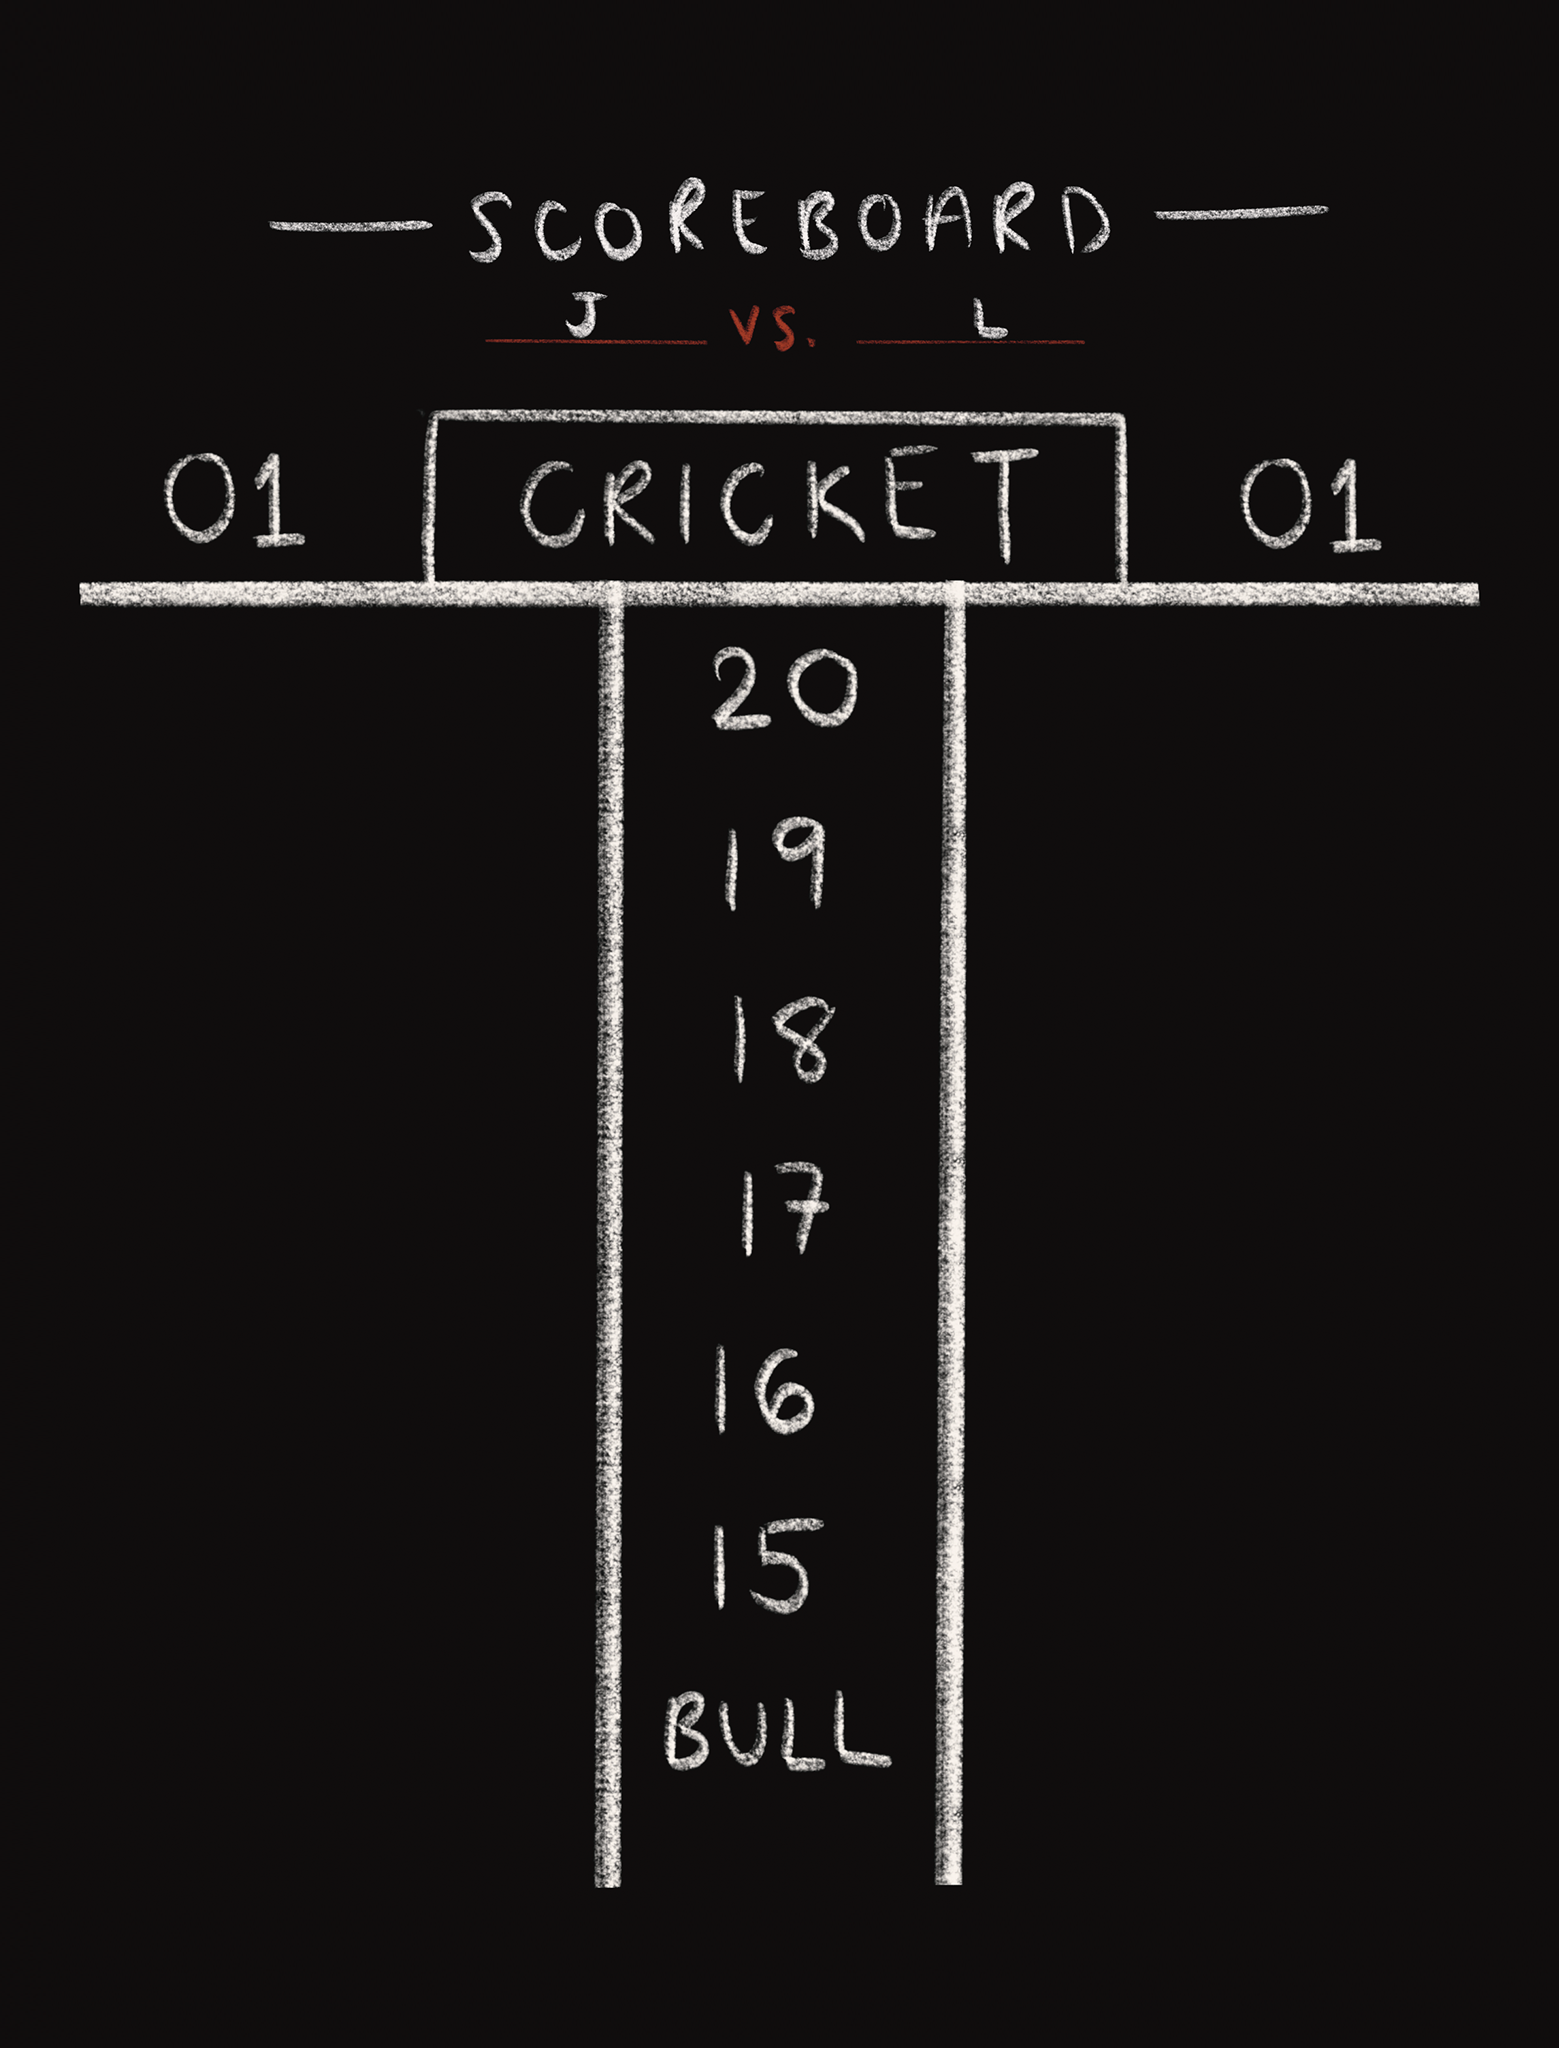 SCOREBOARD
J VS. L
01 CRICKET 01
20
19
18
17
16
15
BULL